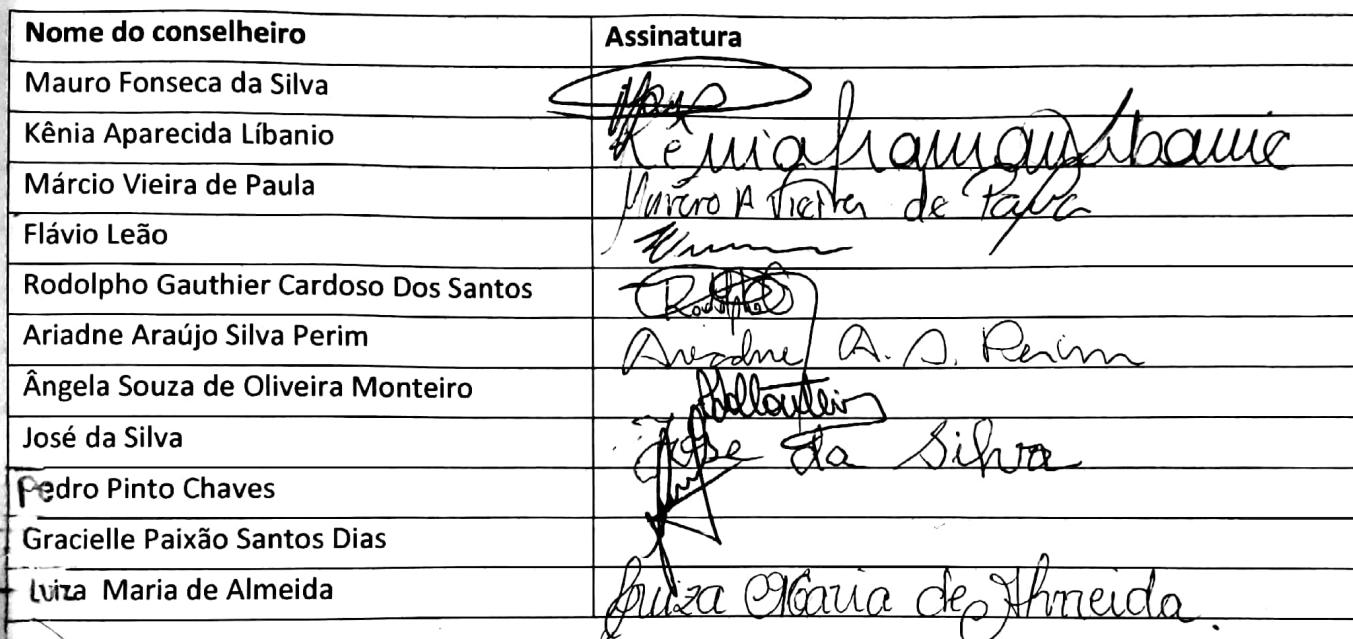 Nome do conselheiro Assinatura
Mauro Fonseca da Silva
Kênia Aparecida Líbanio Kênia Líbanio
Márcio Vieira de Paula Márcio A Vieira de Paula
Flávio Leão
Rodolpho Gauthier Cardoso Dos Santos Rodolpho
Ariadne Araújo Silva Perim Ariadne A. S. Perim
Ângela Souza de Oliveira Monteiro
José da Silva José da Silva
Pedro Pinto Chaves
Gracielle Paixão Santos Dias
Luiza Maria de Almeida Luiza Maria de Almeida.